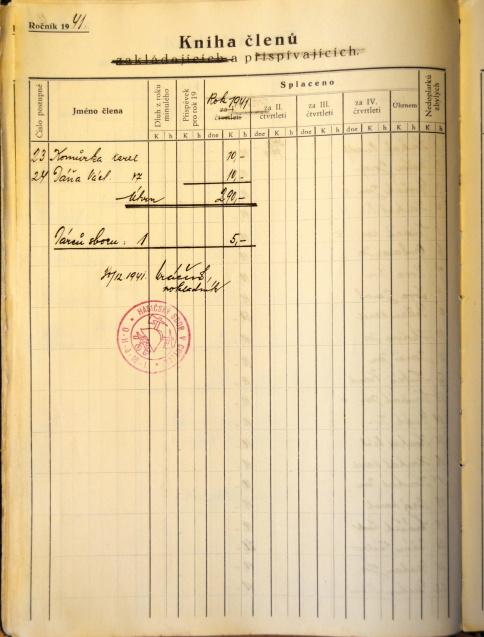 Ročník 1941.
Kniha členů
zakládajících a přispívajících.
Číslo postupné
Jméno člena
Dluh z roku minulého
Příspěvek pro rok 19
Splaceno
Rok 1941
za I. čtvrtletí
za II. čtvrtletí
za III. čtvrtletí
za IV. čtvrtletí
Úhrnem
Nedoplatků zbylých
K h K h dne K h dne K h dne K h dne K h K h K h
23 Komůrka Karel 10,-
24 Váňa Václ. 10,-
Úhrn 290,-
Dárců sboru: 1 5,-
31/12 1941.
pokladník
HASIČSKÝ SBOR V